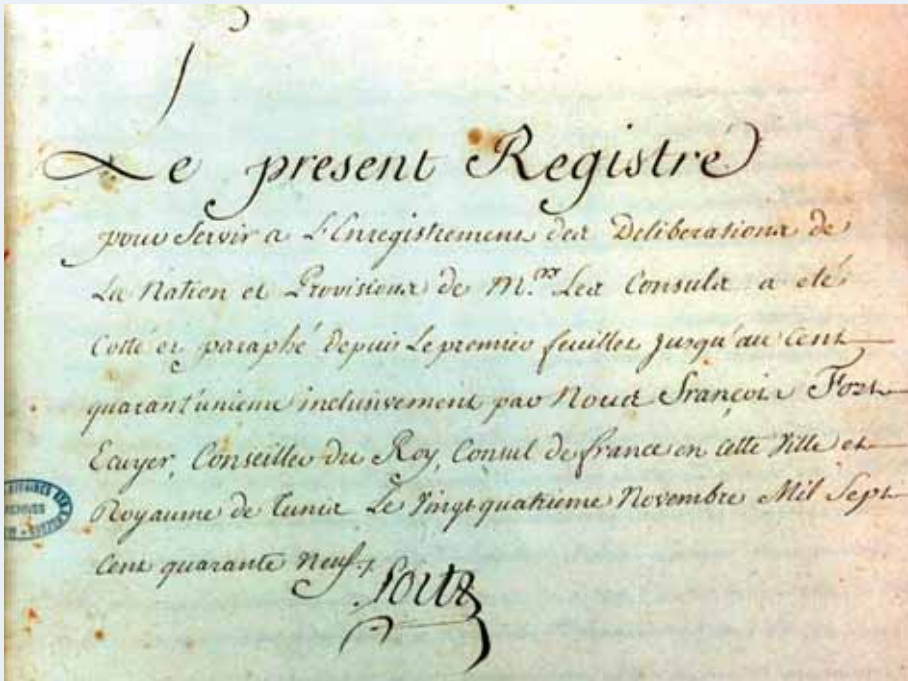 Le present Registre
pour servir a L'Enregistrement des Deliberations de
La Nation et Provisions de M.rs Les Consuls a eté
Cotté et paraphé depuis Le premier feuillet jusqu'au Cent
quarant'unieme inclusivement par Nous François Fort
Ecuyer, Conseiller du Roy, Consul de france en cette Ville et
Royaume de Tunis Le Vingt quatrieme Novembre Mil Sept
Cent quarante Neuf.
Fort
ARCHIVES